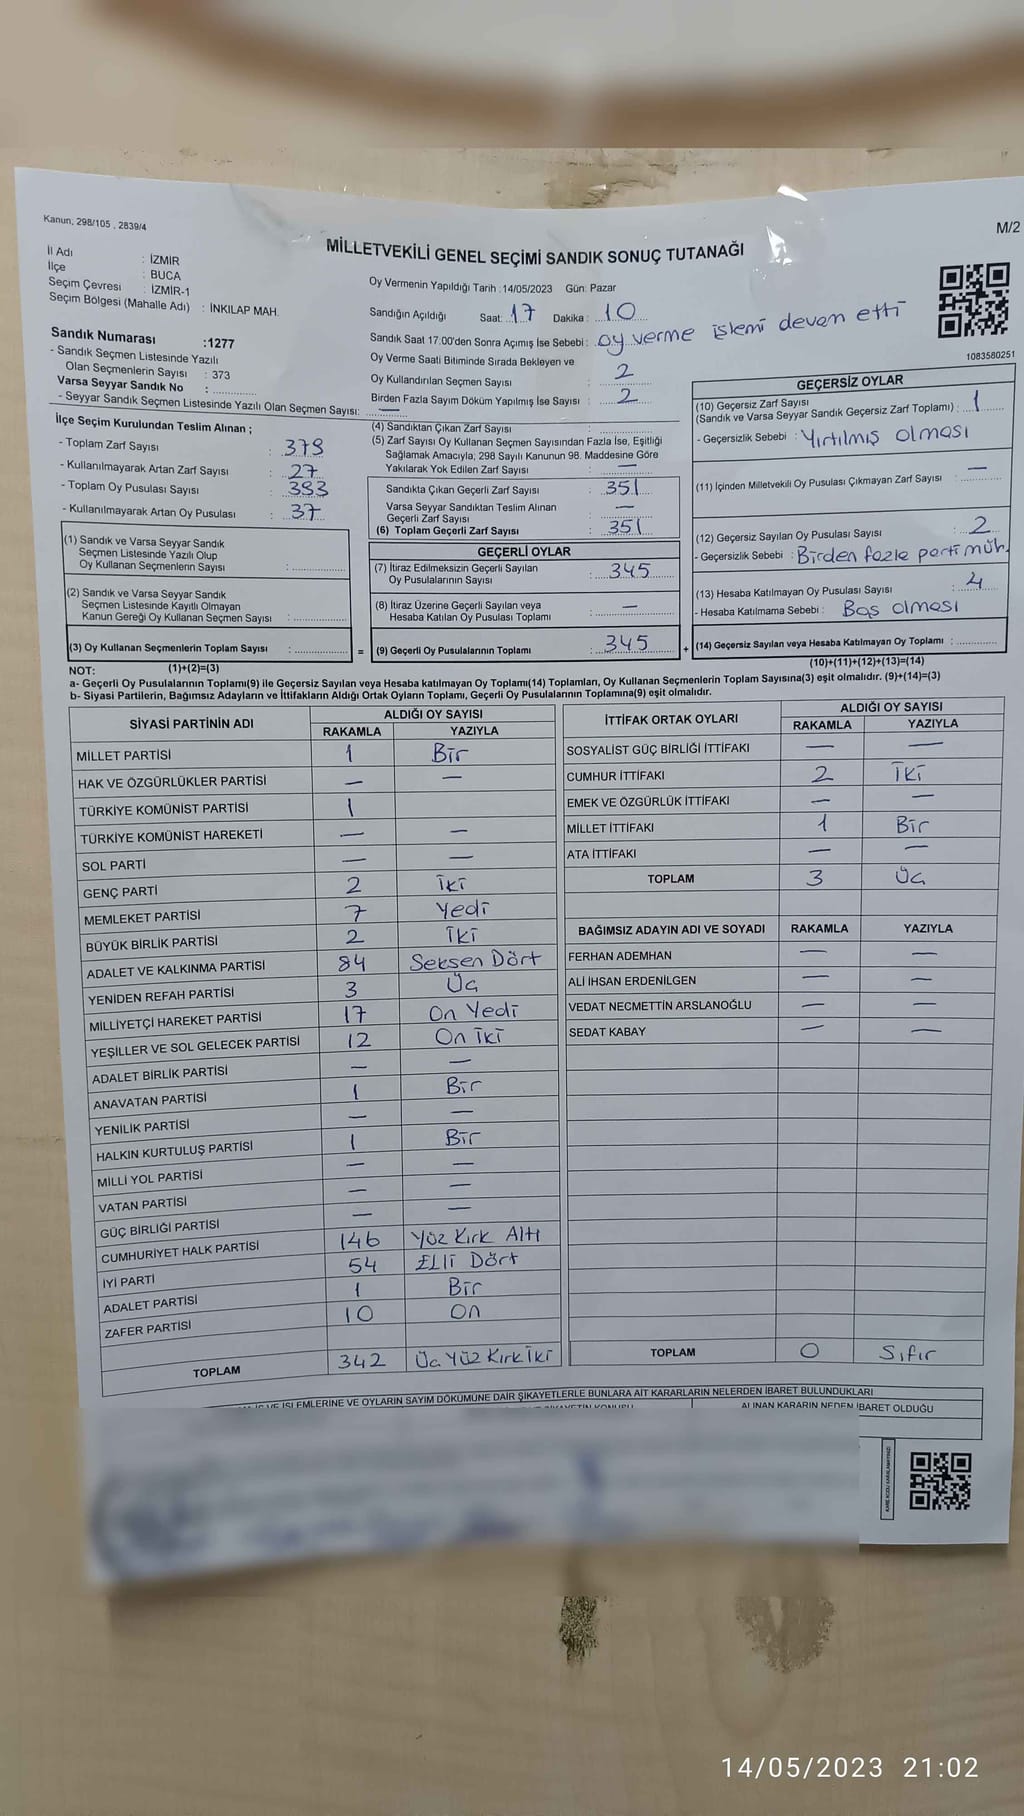 Kanun, 298/105 , 2839/4
M/2
MİLLETVEKİLİ GENEL SEÇİMİ SANDIK SONUÇ TUTANAĞI
İl Adı : İZMİR
İlçe : BUCA
Seçim Çevresi : İZMİR-1
Seçim Bölgesi (Mahalle Adı) : İNKILAP MAH.
Sandık Numarası :1277
- Sandık Seçmen Listesinde Yazılı
Olan Seçmenlerin Sayısı : 373
Varsa Seyyar Sandık No :
- Seyyar Sandık Seçmen Listesinde Yazılı Olan Seçmen Sayısı: —
Oy Vermenin Yapıldığı Tarih :14/05/2023 Gün: Pazar
Sandığın Açıldığı Saat: 17 Dakika : 10
Sandık Saat 17.00'den Sonra Açımış İse Sebebi : oy verme işlemi devam etti
Oy Verme Saati Bitiminde Sırada Bekleyen ve
Oy Kullandırılan Seçmen Sayısı : 2
Birden Fazla Sayım Döküm Yapılmış İse Sayısı : 2
1083580251
İlçe Seçim Kurulundan Teslim Alınan ;
- Toplam Zarf Sayısı : 379
- Kullanılmayarak Artan Zarf Sayısı : 27
- Toplam Oy Pusulası Sayısı : 383
- Kullanılmayarak Artan Oy Pusulası : 37
(1) Sandık ve Varsa Seyyar Sandık
Seçmen Listesinde Yazılı Olup
Oy Kullanan Seçmenlerin Sayısı :
(2) Sandık ve Varsa Seyyar Sandık
Seçmen Listesinde Kayıtlı Olmayan
Kanun Gereği Oy Kullanan Seçmen Sayısı :
(3) Oy Kullanan Seçmenlerin Toplam Sayısı : =
(4) Sandıktan Çıkan Zarf Sayısı :
(5) Zarf Sayısı Oy Kullanan Seçmen Sayısından Fazla İse, Eşitliği
Sağlamak Amacıyla; 298 Sayılı Kanunun 98. Maddesine Göre
Yakılarak Yok Edilen Zarf Sayısı : —
Sandıkta Çıkan Geçerli Zarf Sayısı : 351
Varsa Seyyar Sandıktan Teslim Alınan
Geçerli Zarf Sayısı : —
(6) Toplam Geçerli Zarf Sayısı : 351
GEÇERLİ OYLAR
(7) İtiraz Edilmeksizin Geçerli Sayılan
Oy Pusulalarının Sayısı : 345
(8) İtiraz Üzerine Geçerli Sayılan veya
Hesaba Katılan Oy Pusulası Toplamı : —
(9) Geçerli Oy Pusulalarının Toplamı : 345 +
GEÇERSİZ OYLAR
(10) Geçersiz Zarf Sayısı
(Sandık ve Varsa Seyyar Sandık Geçersiz Zarf Toplamı) : 1
- Geçersizlik Sebebi : Yırtılmış olması
(11) İçinden Milletvekili Oy Pusulası Çıkmayan Zarf Sayısı : —
(12) Geçersiz Sayılan Oy Pusulası Sayısı : 2
- Geçersizlik Sebebi : Birden fazla parti müh.
(13) Hesaba Katılmayan Oy Pusulası Sayısı : 4
- Hesaba Katılmama Sebebi : Boş olması
(14) Geçersiz Sayılan veya Hesaba Katılmayan Oy Toplamı :
NOT: (1)+(2)=(3) (10)+(11)+(12)+(13)=(14)
a- Geçerli Oy Pusulalarının Toplamı(9) ile Geçersiz Sayılan veya Hesaba katılmayan Oy Toplamı(14) Toplamları, Oy Kullanan Seçmenlerin Toplam Sayısına(3) eşit olmalıdır. (9)+(14)=(3)
b- Siyasi Partilerin, Bağımsız Adayların ve İttifakların Aldığı Ortak Oyların Toplamı, Geçerli Oy Pusulalarının Toplamına(9) eşit olmalıdır.
SİYASİ PARTİNİN ADI ALDIĞI OY SAYISI
RAKAMLA YAZIYLA
MİLLET PARTİSİ 1 Bir
HAK VE ÖZGÜRLÜKLER PARTİSİ — —
TÜRKİYE KOMÜNİST PARTİSİ 1
TÜRKİYE KOMÜNİST HAREKETİ — —
SOL PARTİ — —
GENÇ PARTİ 2 İki
MEMLEKET PARTİSİ 7 Yedi
BÜYÜK BİRLİK PARTİSİ 2 İki
ADALET VE KALKINMA PARTİSİ 84 Seksen Dört
YENİDEN REFAH PARTİSİ 3 Üç
MİLLİYETÇİ HAREKET PARTİSİ 17 On Yedi
YEŞİLLER VE SOL GELECEK PARTİSİ 12 On İki
ADALET BİRLİK PARTİSİ — —
ANAVATAN PARTİSİ 1 Bir
YENİLİK PARTİSİ — —
HALKIN KURTULUŞ PARTİSİ 1 Bir
MİLLİ YOL PARTİSİ — —
VATAN PARTİSİ — —
GÜÇ BİRLİĞİ PARTİSİ — —
CUMHURİYET HALK PARTİSİ 146 Yüz Kırk Altı
İYİ PARTİ 54 Elli Dört
ADALET PARTİSİ 1 Bir
ZAFER PARTİSİ 10 On
TOPLAM 342 Üç Yüz Kırk İki
İTTİFAK ORTAK OYLARI ALDIĞI OY SAYISI
RAKAMLA YAZIYLA
SOSYALİST GÜÇ BİRLİĞİ İTTİFAKI — —
CUMHUR İTTİFAKI 2 İki
EMEK VE ÖZGÜRLÜK İTTİFAKI — —
MİLLET İTTİFAKI 1 Bir
ATA İTTİFAKI — —
TOPLAM 3 Üç
BAĞIMSIZ ADAYIN ADI VE SOYADI RAKAMLA YAZIYLA
FERHAN ADEMHAN — —
ALİ İHSAN ERDENİLGEN — —
VEDAT NECMETTİN ARSLANOĞLU — —
SEDAT KABAY — —
TOPLAM 0 Sıfır
VE İŞLEMLERİNE VE OYLARIN SAYIM DÖKÜMÜNE DAİR ŞİKAYETLERLE BUNLARA AİT KARARLARIN NELERDEN İBARET BULUNDUKLARI
ALINAN KARARIN NEDEN İBARET OLDUĞU
14/05/2023 21:02